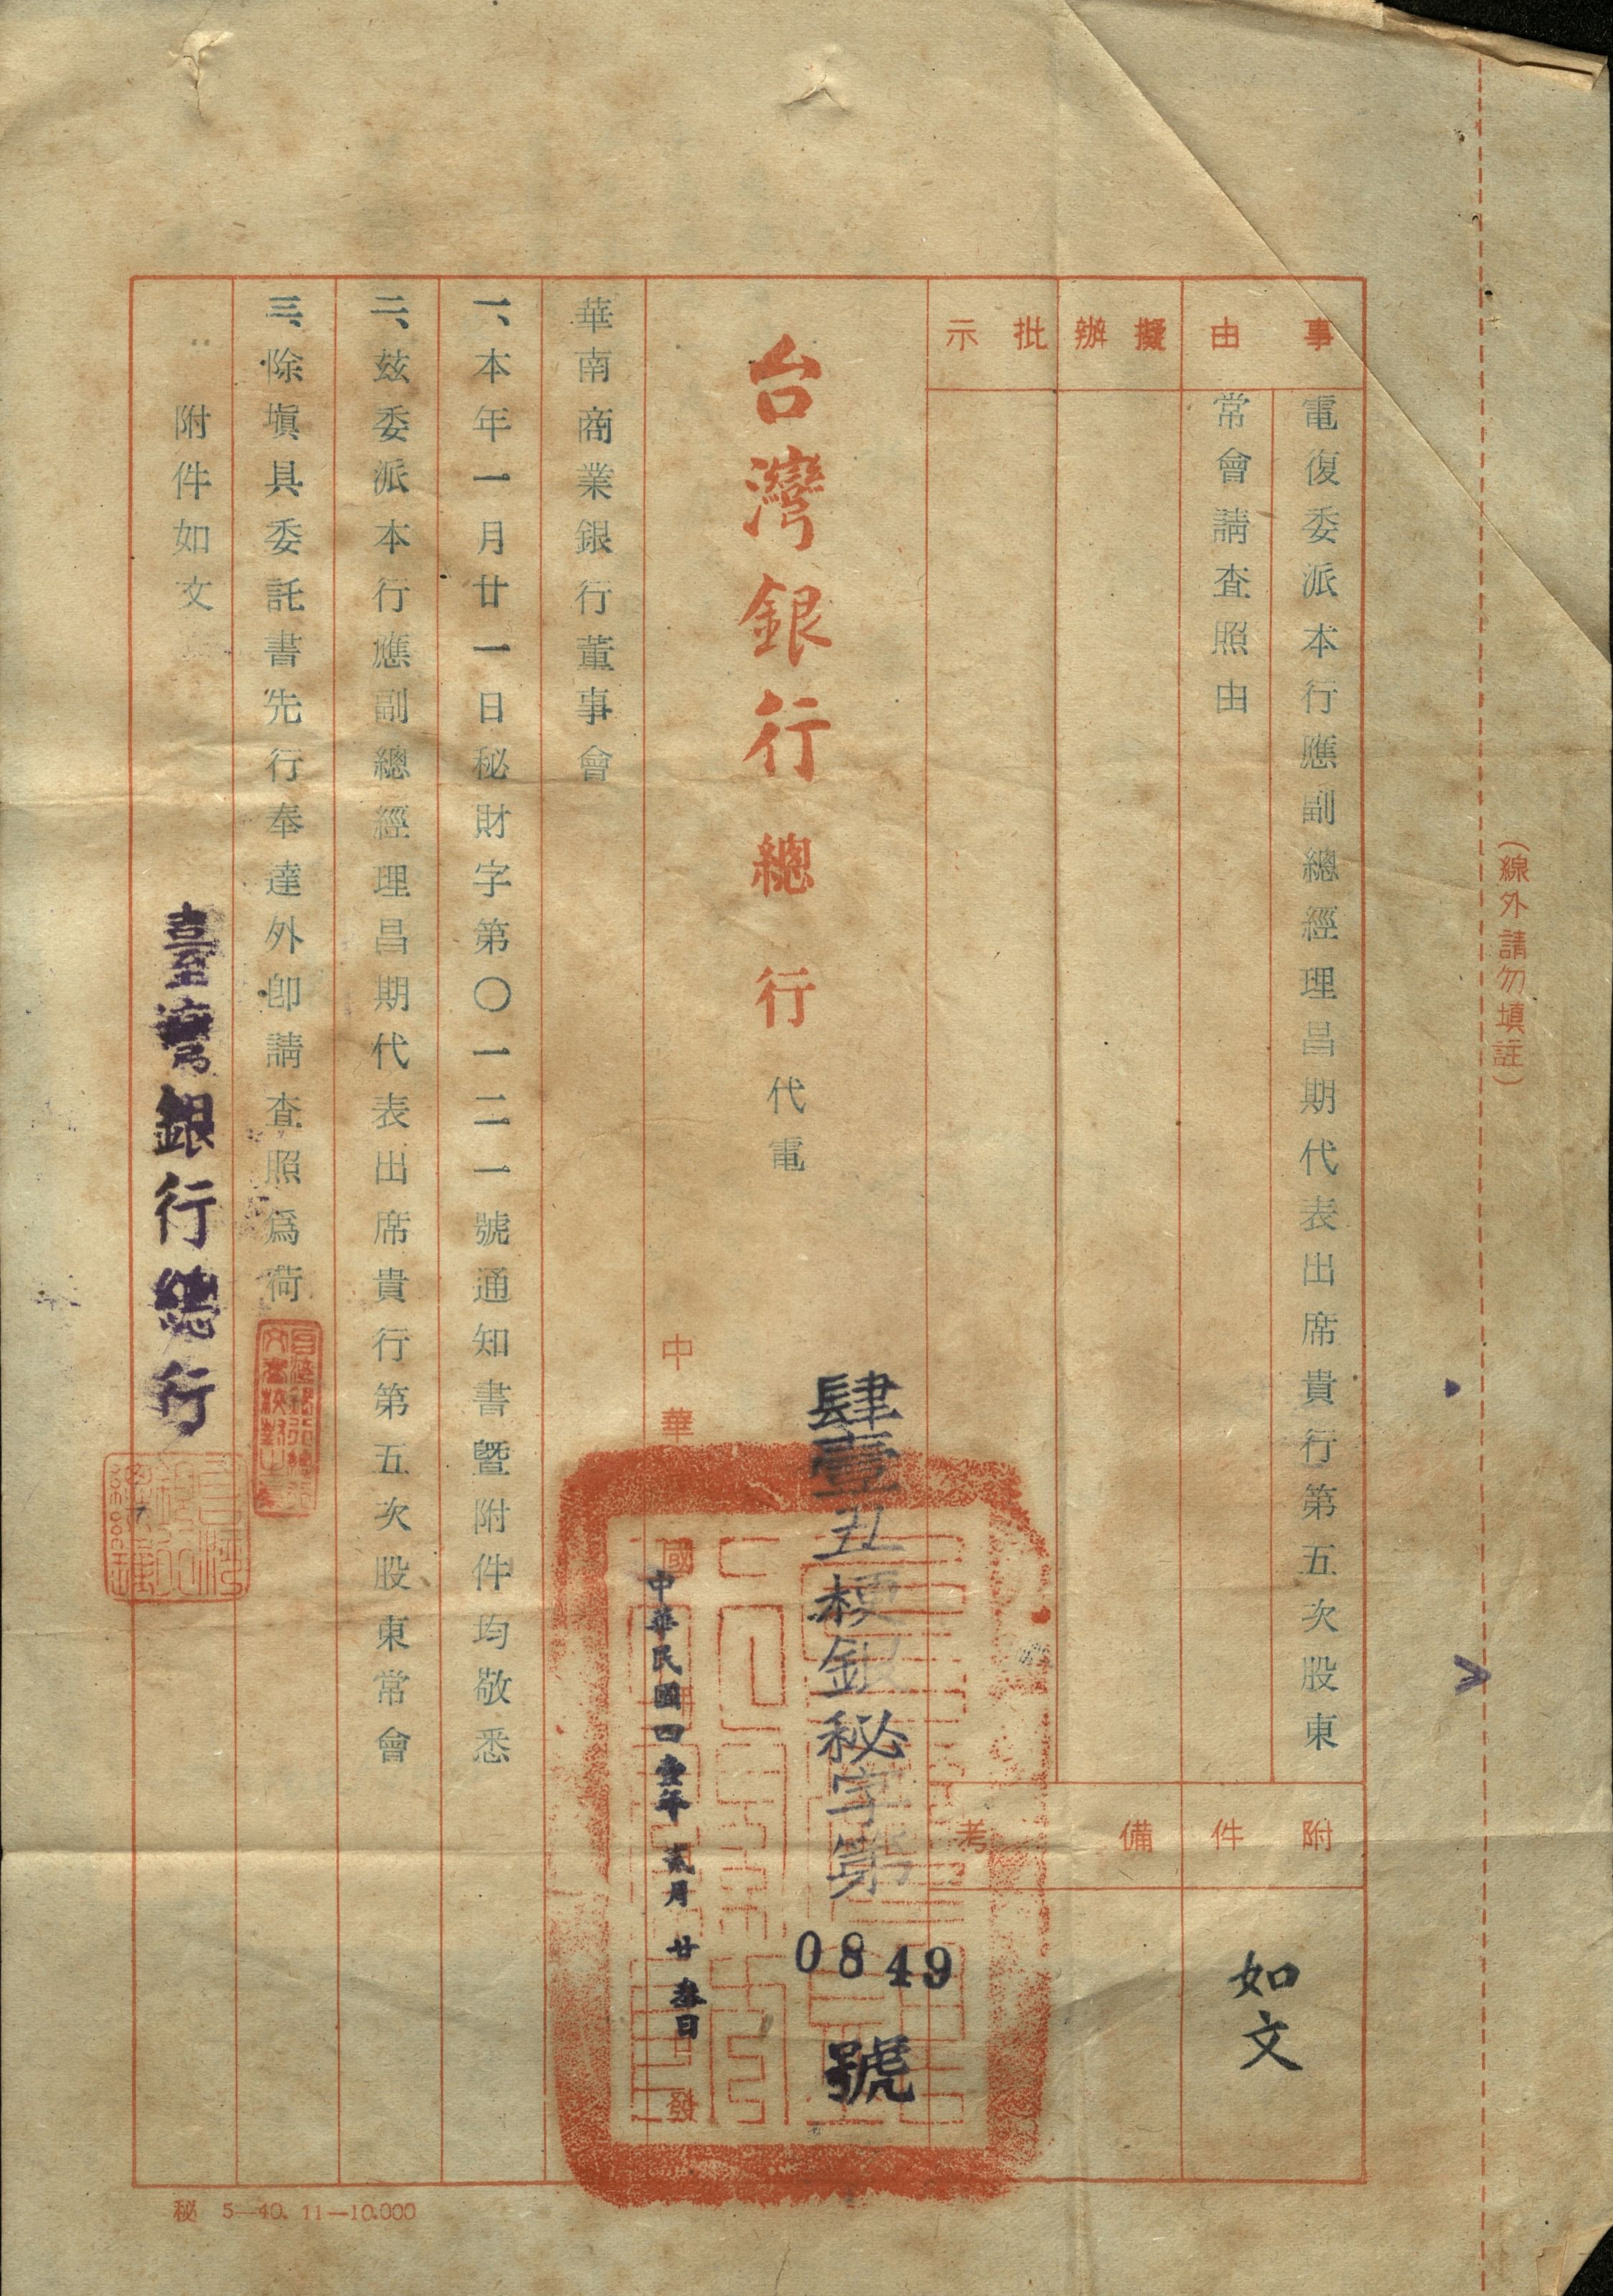 (線外請勿填註)
事由
電復委派本行應副總經理昌期代表出席貴行第五次股東
常會請查照由
擬辦
批示
附件
如文
備考
台灣銀行總行代電
肆壹丑梗銀秘字第
0849
號
中華國
發
中華民國四壹年貳月廿叁日
華南商業銀行董事會
一、本年一月廿一日秘財字第〇一二一號通知書暨附件均敬悉
二、玆委派本行應副總經理昌期代表出席貴行第五次股東常會
三、除塡具委託書先行奉達外卽請查照爲荷
附件如文
臺灣銀行總行
秘 5—40. 11—10.000